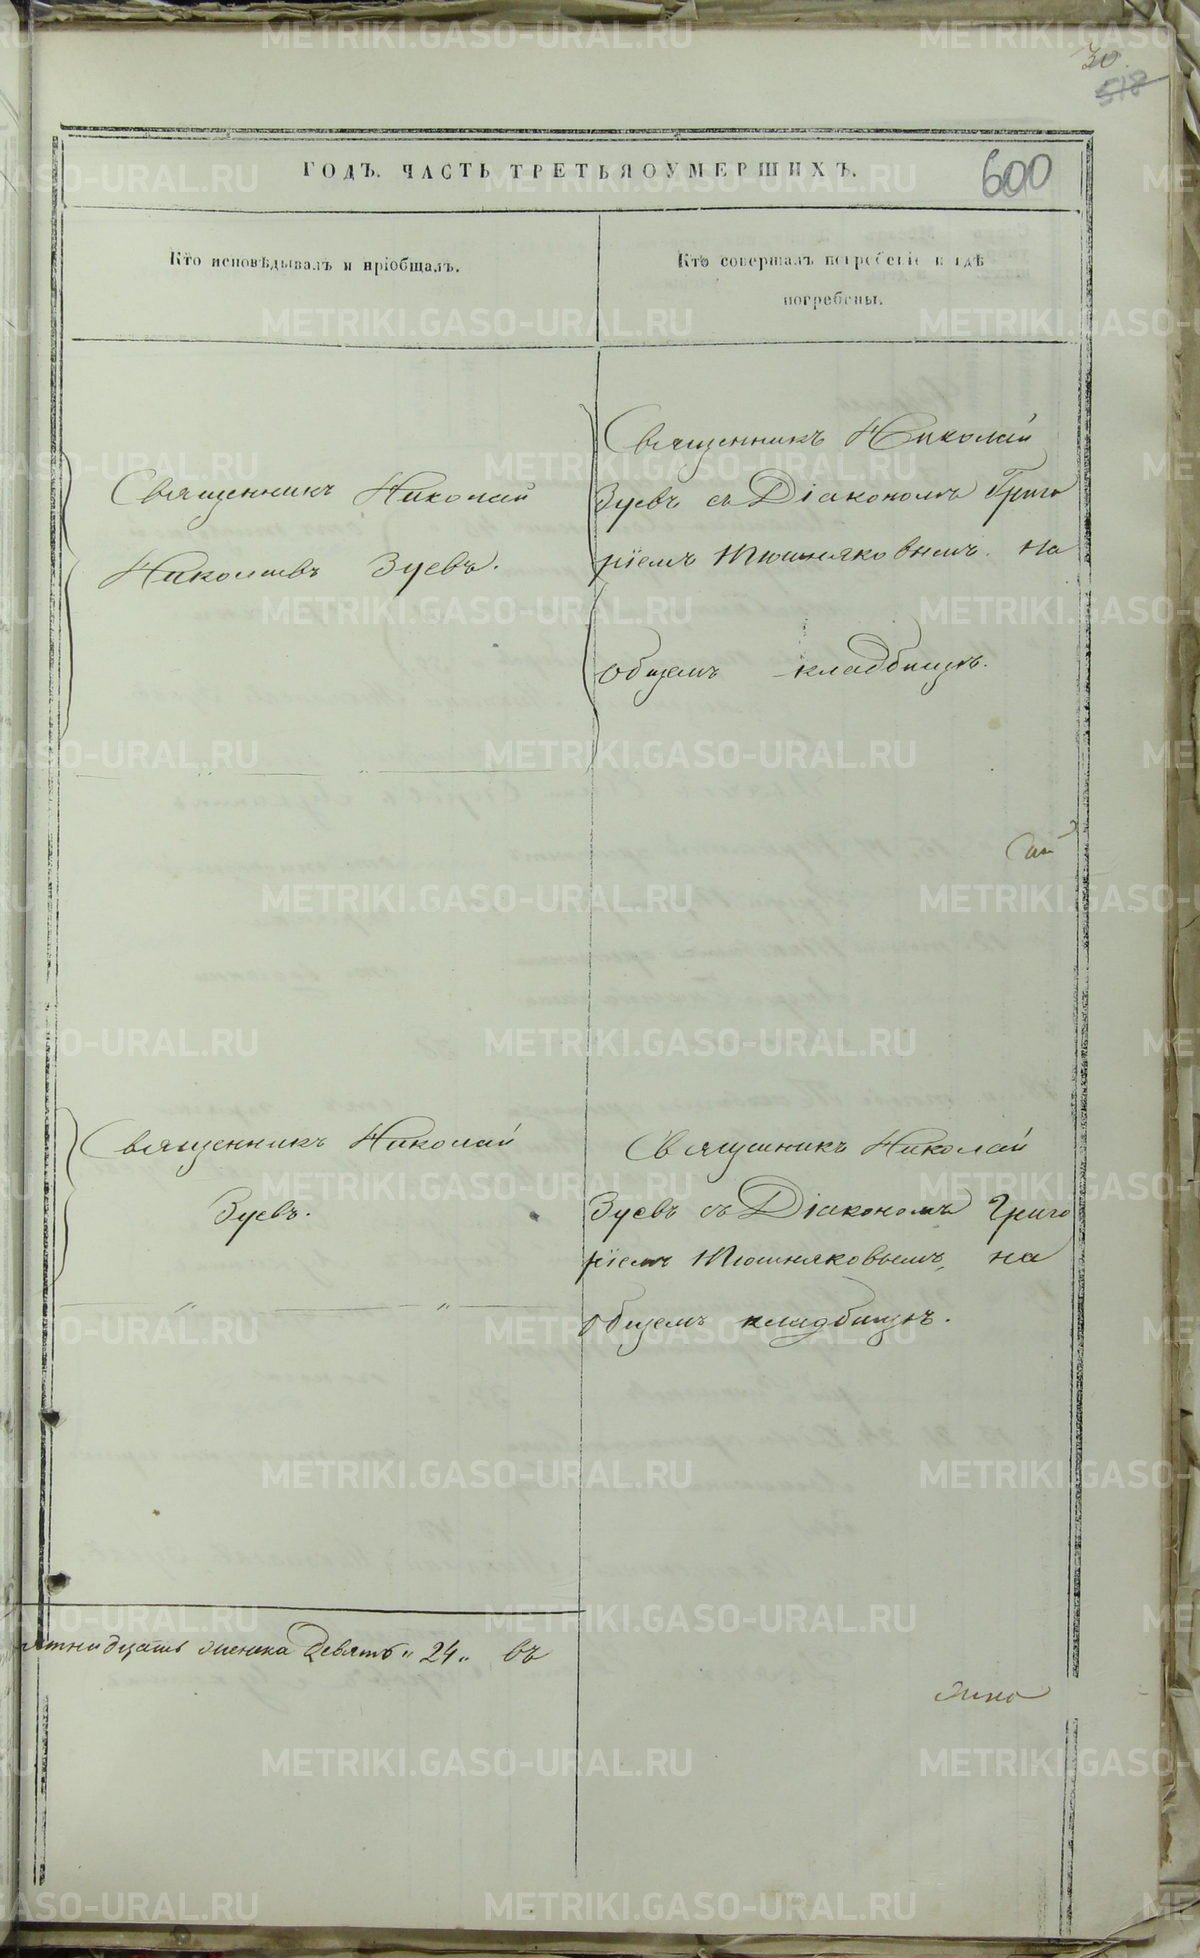 30.
518
600
ГОДЪ. ЧАСТЬ ТРЕТЬЯ О УМЕРШИХЪ.
Кто исповѣдывалъ и пріобщалъ.
Кто совершалъ погребеніе и гдѣ
погребены.
Священникъ Николай
Зуевъ.
Священникъ Николай
Зуевъ съ Діакономъ Григо
ріемъ Тюшняковымъ. на
общемъ кладбищѣ.
Священникъ Николай
Зуевъ.
Священникъ Николай
Зуевъ съ Діакономъ Григо
ріемъ Тюшняковымъ, на
общемъ кладбищѣ.
женска девять „24„ въ
METRIKI.GASO-URAL.RU